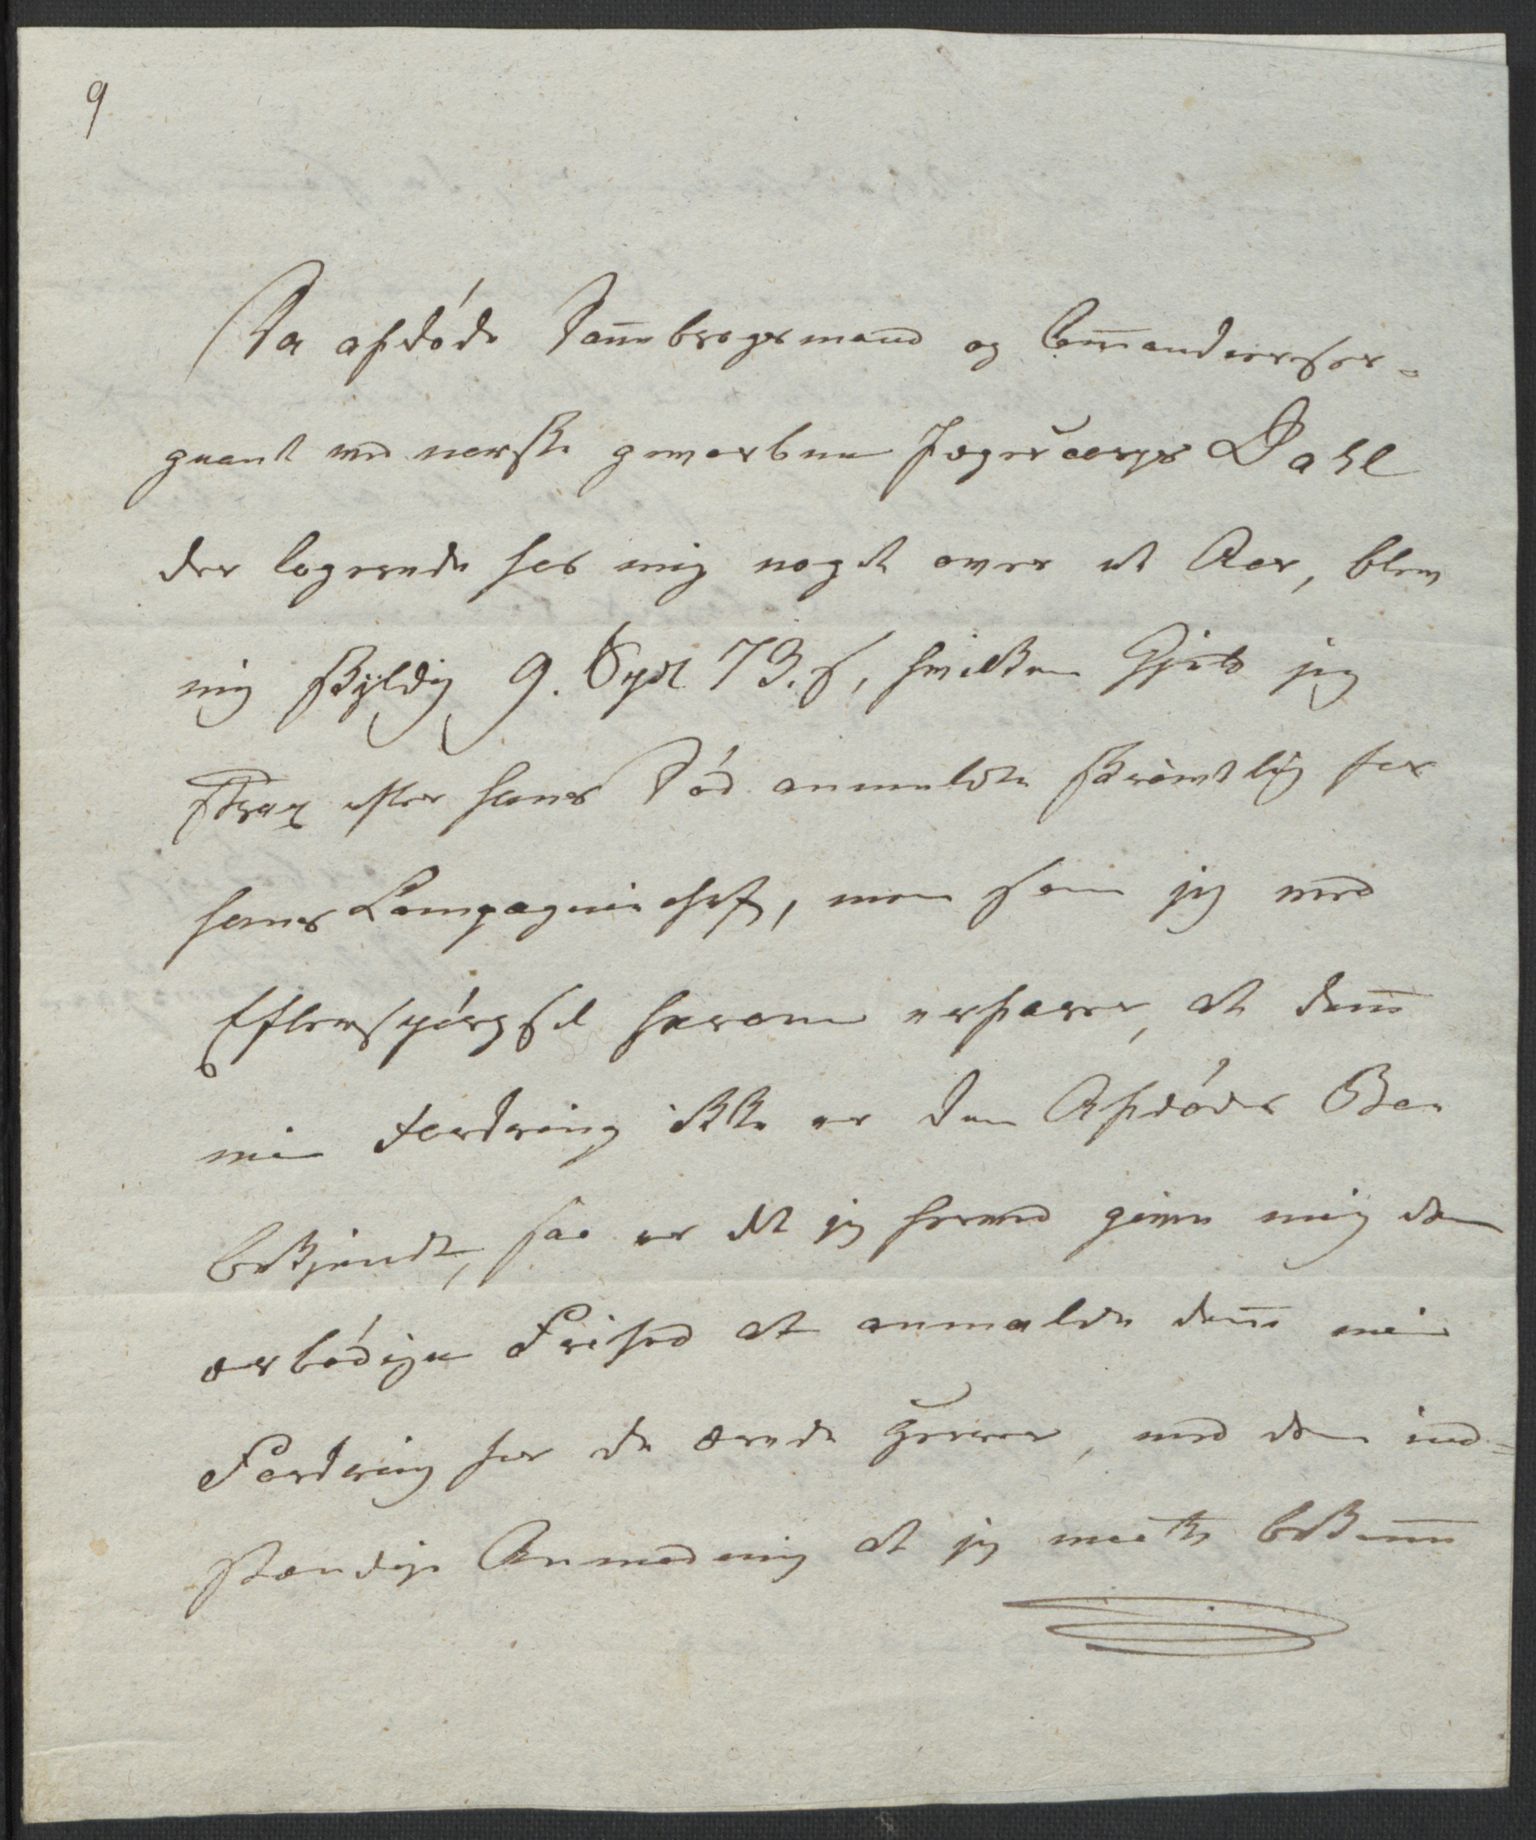 9
Da afdøde Dannebrogsmand og Commandeerser-
geant ved norske gevorbne Jægercorps Dahl
der logerede hos mig noget over et Aar, blev
mig skyldig 9. Spd 73. s, hvilken Gjeld jeg
strax efter hans Død anmeldte skrivtlig for
hans Compagniechef, men som jeg ved
Efterspørgsel herom erfarer, at denne
min Fordring ikke er den Afdødes Boe
bekjendt, saa er det jeg herved giver mig den
ærbødige Frihed at anmelde denne min
Fordring for de ærede Herrer, med den ind-
stændige Anmodning at jeg maatte bekomme